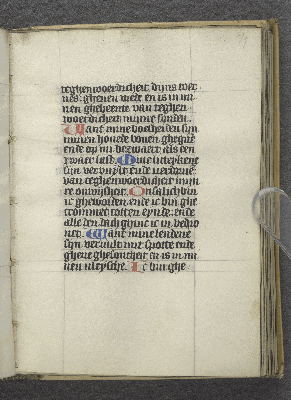 teghenwoerdicheit dijns toer
nes: ghenen vrede en is in mi
nen ghebeente van teghen
woerdicheit mijnre sonden.
Want mine boesheiden sijn
minen hovede boven ghegaen
ende op mi verswaert als een
swaer last. Mine lijcteykene
sijn vervuylt ende
van teghenwoerdicheit mijn
re onwijsheit. Onsalich bin
ic gheworden. ende ic bin ghe
crommet totten eynde. ende
alle den dach ghinc ic in bedro
net. Want mine lendene
sijn vervult mit spotte ende
ghene ghesontheit en is in mi
nen vleysche. Ic bin ghe